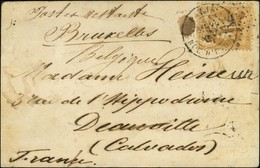 Poste restante
Bruxelles
Belgique
Madame Heine
3 rue de l'Hippodrome
Deauville
(Calvados)
France